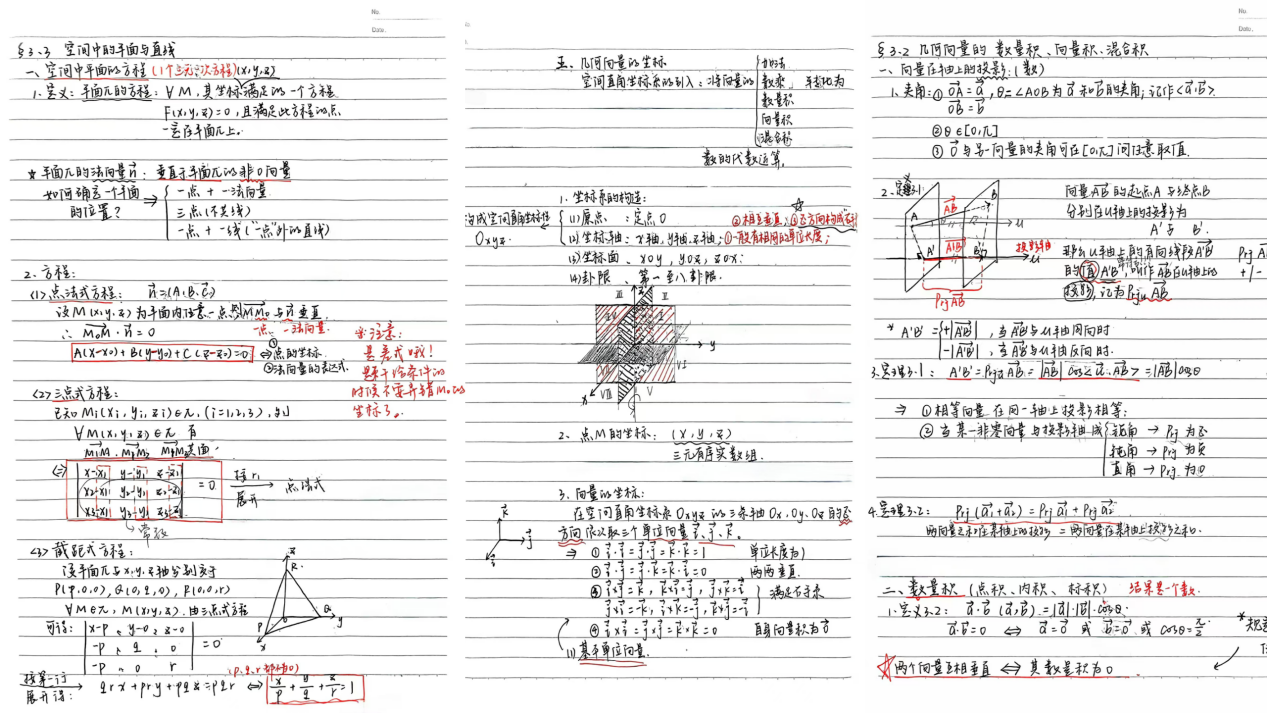 No.
Date.
§3.3 空间中的平面与直线
一、空间中平面的方程 (1个三元一次方程)(x,y,z)
1.定义:平面π的方程:∀M,其坐标满足的一个方程
F(x,y,z)=0,且满足此方程的点
一定在平面π上。
* 平面π的法向量n⃗:垂直于平面π的非0向量
如何确定一个平面
的位置? ⇒
一点+一法向量
三点(不共线)
一点+一线("一点"外的直线)
2.方程:
<1>点法式方程: n⃗=(A,B,C)
设M(x,y,z)为平面内任意一点,则MM₀与n⃗垂直
∴ M₀M·n⃗=0 一点、一法向量
A(x-x₀)+B(y-y₀)+C(z-z₀)=0 ⇔ ①点的坐标
②法向量的表达式.
注意:
是差式哦!
题干给条件的
时候不要弄错M₀的
坐标了。
<2>三点式方程:
已知Mi(xi,yi,zi)∈π,(i=1,2,3),则
∀M(x,y,z)∈π 有
M₁M、M₁M₂、M₁M₃共面
⇔ | x-x₁ y-y₁ z-z₁ |
| x₂-x₁ y₂-y₁ z₂-z₁ | =0 按r₁展开 → 点法式
| x₃-x₁ y₃-y₁ z₃-z₁ |
常数
<3>截距式方程:
设平面π与x,y,z轴分别交于
P(p,0,0),Q(0,q,0),R(0,0,r)
∀M∈π,M(x,y,z).由三点式方程
可得: | x-p , y-0 , z-0 |
| -p , q , 0 | =0
| -p , 0 r |
(p,q,r都不为0)
按第一行展开得: qrx+pry+pqz=pqr ⇔ x/p+y/q+z/r=1
z
R
Q
y
P
x
五、几何向量的坐标
空间直角坐标系的引入:将向量的
加法
数乘
数量积
向量积
混合积
转化为
数的代数运算.
1.坐标系的构造:
构成空间直角坐标系
Oxyz.
(1)原点:定点O
②相互垂直;③正方向构成右手
(2)坐标轴:x轴,y轴,z轴;①一般有相同的单位长度;
(3)坐标面、xOy,yOz,zOx:
(4)卦限、第一至八卦限.
z
III
I
y
VI
x
VIII
V
2.点M的坐标: (x,y,z)
三元有序实数组.
3.向量的坐标:
在空间直角坐标系Oxyz的三条轴Ox,Oy,Oz的正
方向依次取三个单位向量i⃗、j⃗、k⃗。
⇒ ①i⃗·i⃗=j⃗·j⃗=k⃗·k⃗=1 单位长度为1
②i⃗·j⃗=j⃗·k⃗=k⃗·i⃗=0 两两垂直.
③i⃗×j⃗=k⃗,k⃗×i⃗=j⃗,j⃗×k⃗=i⃗ 满足右手系
④i⃗×i⃗=j⃗×j⃗=k⃗×k⃗=0 自身向量积为0⃗
(1)基本单位向量.
k⃗
j⃗
i⃗
No.
Date.
§3.2 几何向量的数量积、向量积、混合积
一、向量在轴上的投影:(数)
1.夹角:①OA=a⃗,θ=∠AOB为a⃗和b⃗的夹角;记作<a⃗,b⃗>
OB=b⃗
②θ∈[0,π]
③0⃗与另一向量的夹角可在[0,π]间任意取值.
2.定义3.1:
向量AB的起点A与终点B
分别在u轴上的投影为
A'与 B'.
那么u轴上的有向线段A'B'
的值A'B',叫作AB在u轴上的
投影,记为PrjᵤAB
Prj
+/-
A
B
AB
u
A'
A'B'
B'
投影轴
u
PrjAB
* A'B'= +|A'B'|,当A'B'与u轴同向时
-|A'B'|,当A'B'与u轴反向时.
3.定理3.1: A'B'=PrjᵤAB=|AB|cos<u⃗,AB>=|AB|cosθ
⇒ ①相等向量在同一轴上投影相等;
②当某一非零向量与投影轴成
锐角→Prj为正
钝角→Prj为负
直角→Prj为0
4.定理3.2: Prj(a₁+a₂)=Prj a₁+Prj a₂
两向量之和在某轴上的投影=两向量在某轴上投影之和.
二、数量积(点积、内积、标积) 结果是一个数.
1.定义3.2: a⃗·b⃗(a⃗,b⃗)=|a⃗|·|b⃗|·cosθ.
a⃗·b⃗=0 ⇔ a⃗=0⃗ 或 b⃗=0⃗ 或 cosθ=π/2
* 规定
☆两个向量互相垂直 ⇔ 其数量积为0